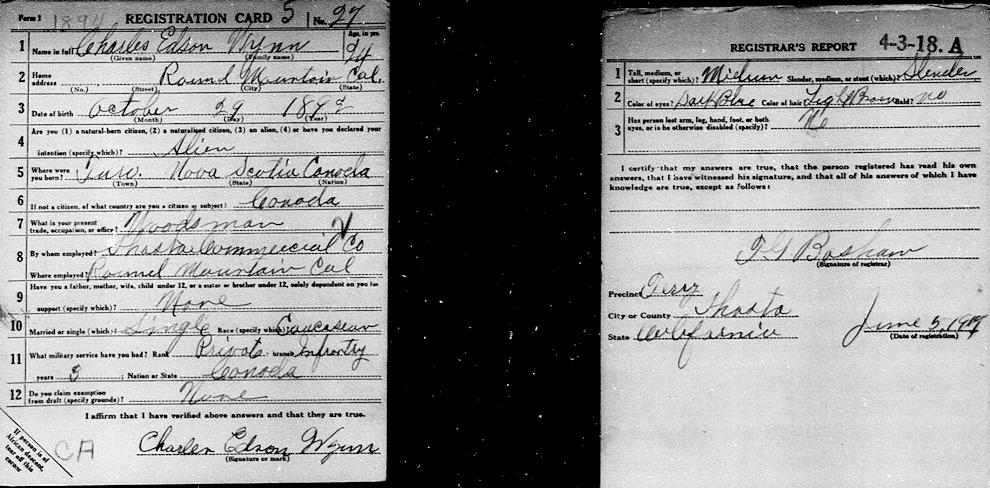 Form 1 1894 REGISTRATION CARD 5 No. 27
1 Name in full Charles Edson Wynn Age, in yrs. 24
(Given name) (Family name)
2 Home address Round Mountain Cal.
(No.) (Street) (City) (State)
3 Date of birth October 29 1892
(Month) (Day) (Year)
4 Are you (1) a natural-born citizen, (2) a naturalized citizen, (3) an alien, (4) or have you declared your
intention (specify which)? Alien
5 Where were you born? Nova Scotia Canada
(Town) (State) (Nation)
6 If not a citizen, of what country are you a citizen or subject? Canada
7 What is your present trade, occupation, or office? Woodsman
8 By whom employed? Shasta Commercial Co
Where employed? Round Mountain Cal
9 Have you a father, mother, wife, child under 12, or a sister or brother under 12, solely dependent on you for
support (specify which)? None
10 Married or single (which)? Single Race (specify which)? Caucasian
11 What military service have you had? Rank Private branch Infantry
years 3; Nation or State Canada
12 Do you claim exemption from draft (specify grounds)? None
I affirm that I have verified above answers and that they are true.
CA
Charles Edson Wynn
(Signature or mark)
If person is of
African descent,
tear off this
corner
REGISTRAR'S REPORT 4-3-18. A
1 Tall, medium, or short (specify which)? Medium Slender, medium, or stout (which)? Slender
2 Color of eyes? Dark Blue Color of hair? Light Brown Bald? no
3 Has person lost arm, leg, hand, foot, or both eyes, or is he otherwise disabled (specify)? No
I certify that my answers are true, that the person registered has read his own
answers, that I have witnessed his signature, and that all of his answers of which I have
knowledge are true, except as follows:
(Signature of registrar)
Precinct
City or County Shasta
State California
June 5, 1917
(Date of registration)